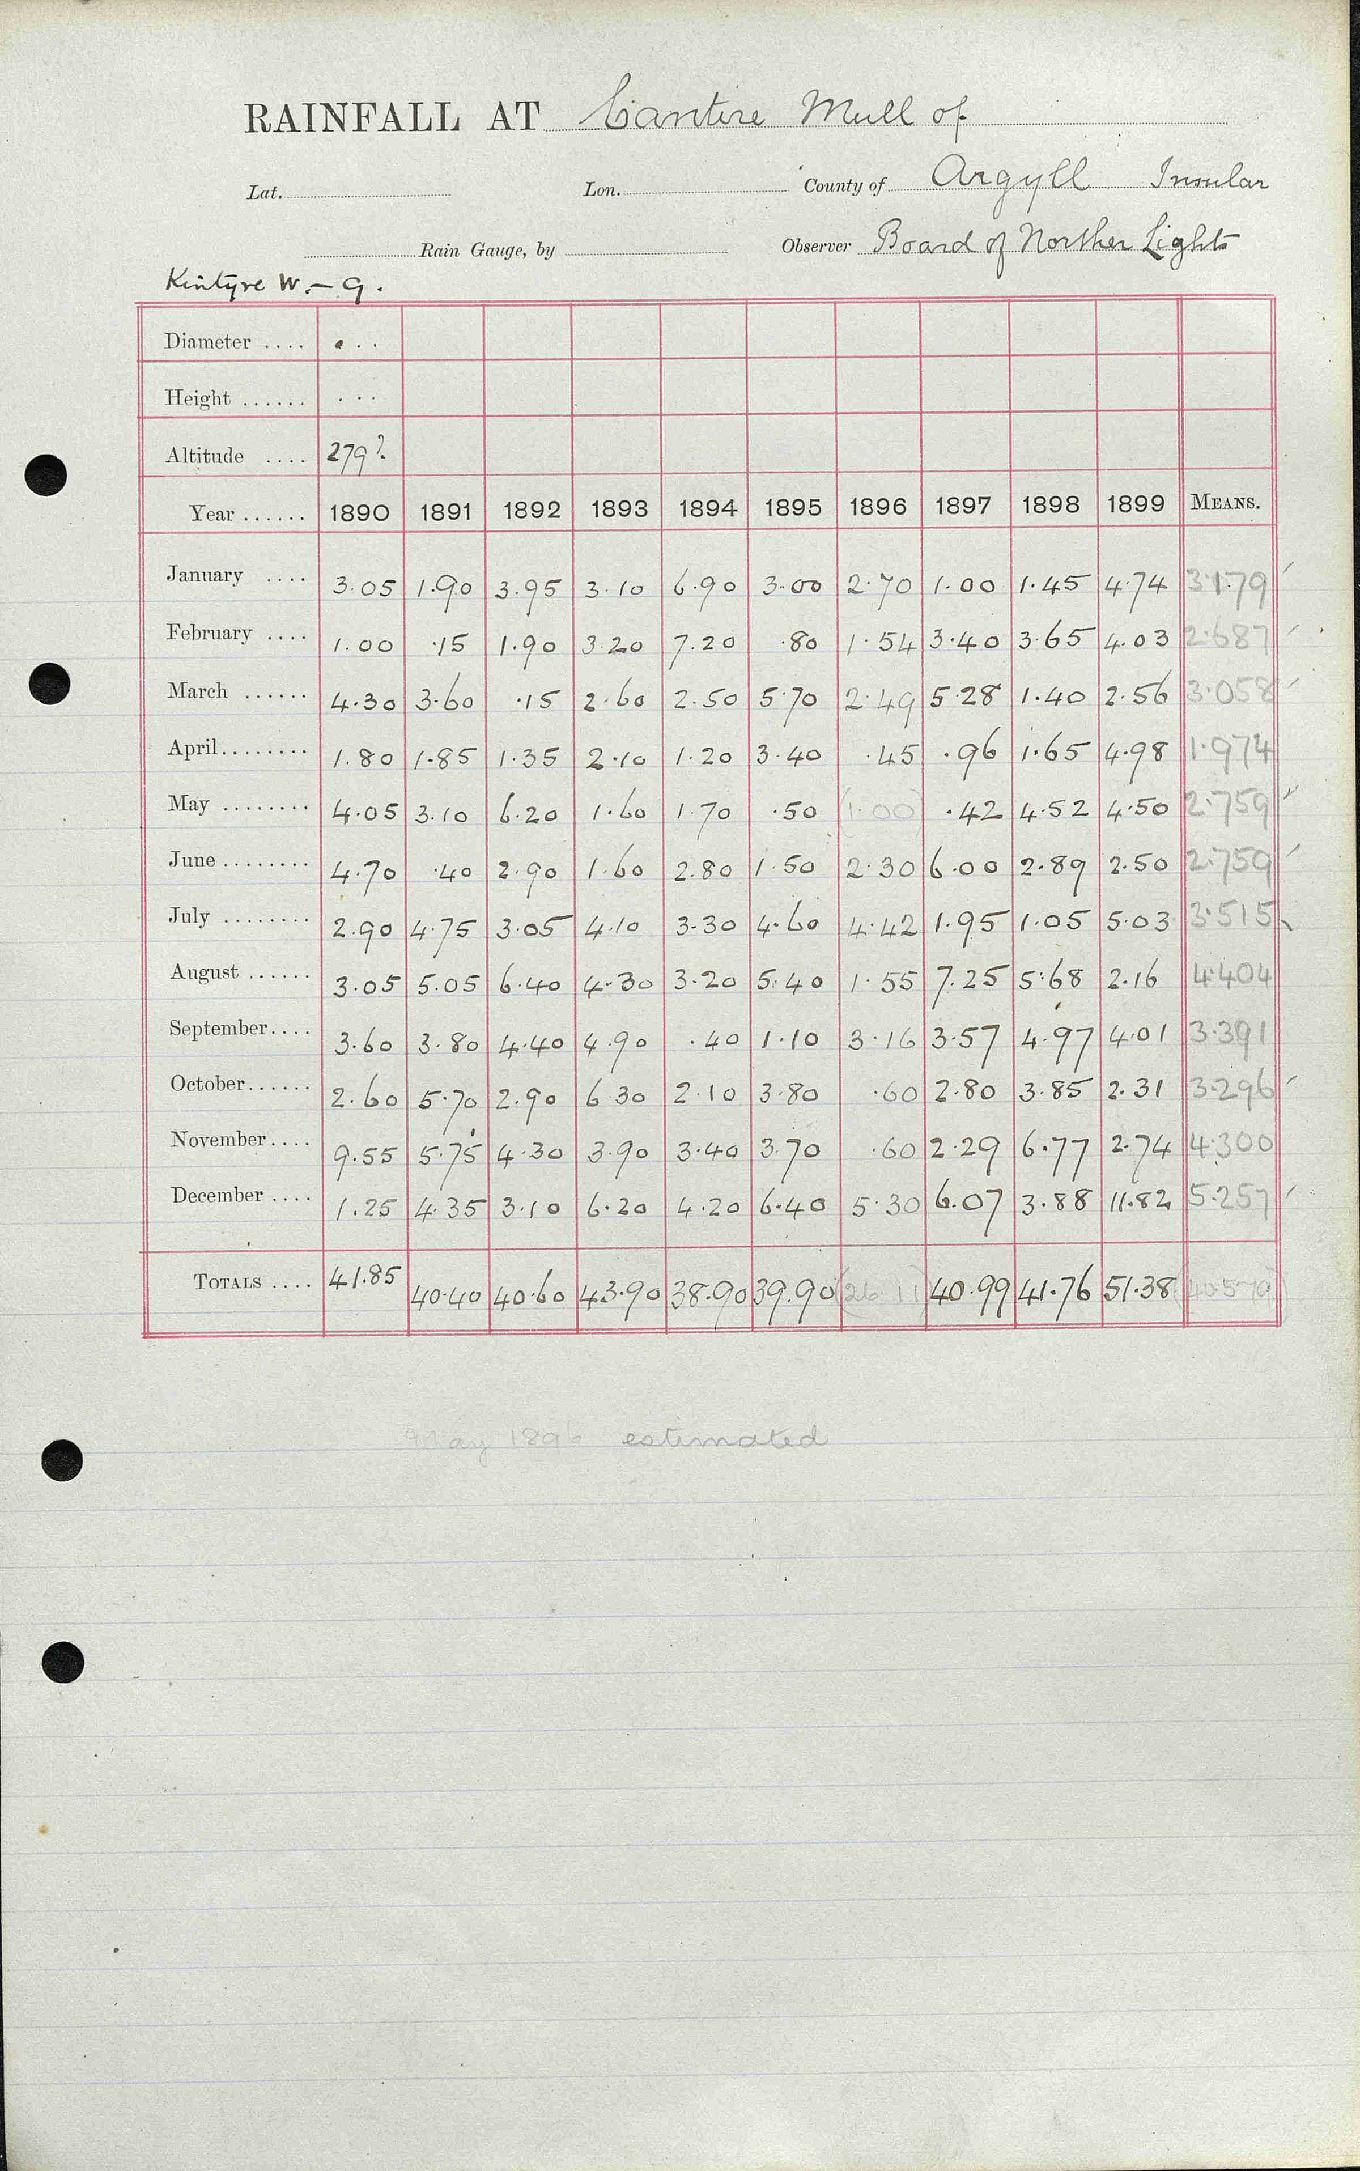 RAINFALL AT Cantire Mull of
Lat. Lon. County of Argyll Insular
Rain Gauge, by Observer Board of Norther Lights
Kintyre W. – 9.
Diameter .... . . .
Height ...... . . .
Altitude .... 279?
Year ...... 1890 1891 1892 1893 1894 1895 1896 1897 1898 1899 MEANS.
January .... 3.05 1.90 3.95 3.10 6.90 3.00 2.70 1.00 1.45 4.74 3.179
February .... 1.00 .15 1.90 3.20 7.20 .80 1.54 3.40 3.65 4.03 2.687
March ...... 4.30 3.60 .15 2.60 2.50 5.70 2.49 5.28 1.40 2.56 3.058
April ........ 1.80 1.85 1.35 2.10 1.20 3.40 .45 .96 1.65 4.98 1.974
May ........ 4.05 3.10 6.20 1.60 1.70 .50 (1.00) .42 4.52 4.50 2.759
June ........ 4.70 .40 2.90 1.60 2.80 1.50 2.30 6.00 2.89 2.50 2.759
July ........ 2.90 4.75 3.05 4.10 3.30 4.60 4.42 1.95 1.05 5.03 3.515
August ...... 3.05 5.05 6.40 4.30 3.20 5.40 1.55 7.25 5.68 2.16 4.404
September .... 3.60 3.80 4.40 4.90 .40 1.10 3.16 3.57 4.97 4.01 3.391
October ...... 2.60 5.70 2.90 6 30 2.10 3.80 .60 2.80 3.85 2.31 3.296
November .... 9.55 5.75 4.30 3.90 3.40 3.70 .60 2.29 6.77 2.74 4.300
December .... 1.25 4.35 3.10 6.20 4.20 6.40 5.30 6.07 3.88 11.82 5.257
TOTALS .... 41.85 40.40 40.60 43.90 38.90 39.90 (26.11) 40.99 41.76 51.38 (40.579)
May 1896 estimated